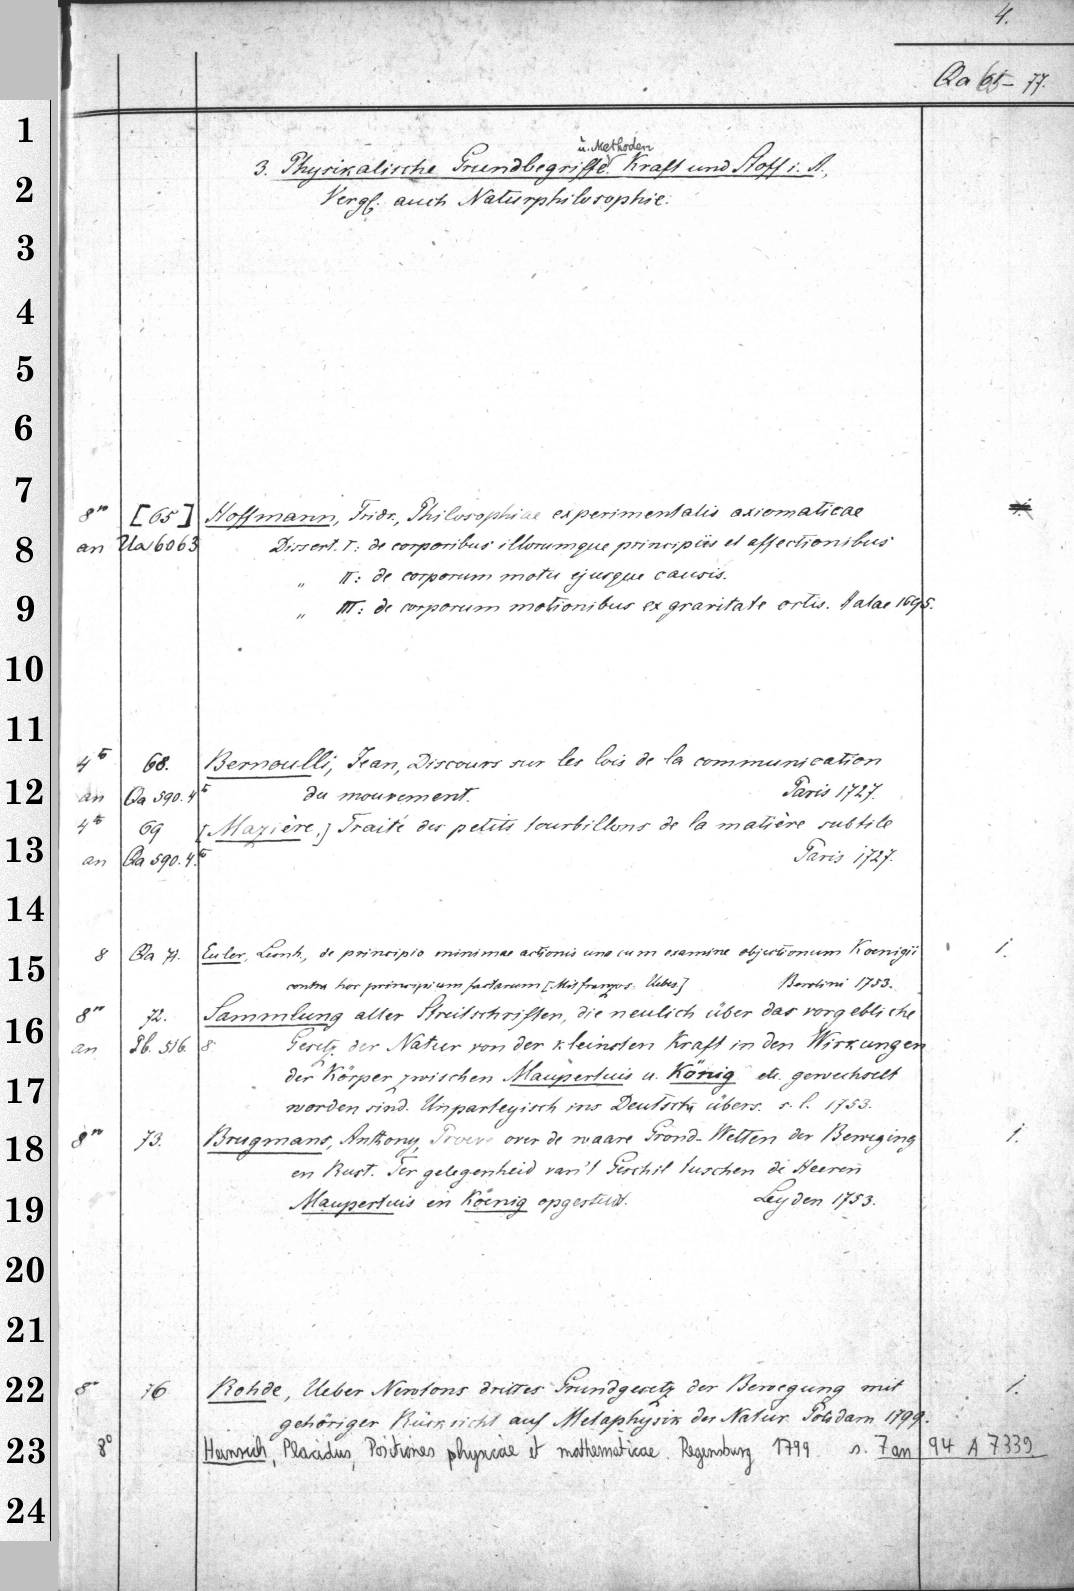 4.
Qa 65-77.
u. Methoden
3. Physikalische Grundbegriffe. Kraft und Stoff i. A.,
Vergl. auch Naturphilosophie.
1
2
3
4
5
6
7
8vo [65] Hoffmann, Fridr., Philosophiae experimentalis axiomaticae
8
an Ua 6063 Dissert. I: de corporibus illorumque principiis et affectionibus
„ II: de corporum motu ejusque causis.
9
„ III: de corporum motionibus ex gravitate ortis. Halae 1695.
10
11
4to 68. Bernoulli, Jean, Discours sur les lois de la communication
12
an Qa 590. 4to du mouvement. Paris 1727.
4to 69 [Mazière.] Traité des petits tourbillons de la matière subtile
13
an Qa 590. 4to Paris 1727.
14
8 Qa 71. Euler, Leonh., de principio minimae actionis una cum examine objectionum Koenigii 1.
15
contra hoc principium factarum [Mit französ. Uebers.] Berolini 1753.
8vo 72. Sammlung aller Streitschriften, die neulich über das vorgebliche
16
an Pb. 516. 8 Gesetz der Natur von der kleinsten Kraft in den Wirkungen
der Körper zwischen Maupertuis u. König etc. gewechselt
17
worden sind. Unparteyisch ins Deutsche übers. s. l. 1753.
8vo 73. Brugmans, Anthony, Proeve over de waare Grond-Wetten der Beweging 1.
18
en Rust. Ter gelegenheid van't Geschil tusschen de Heeren
Maupertuis en Köenig opgesteld. Leyden 1753.
19
20
21
22
8o 76 Rohde, Ueber Newtons drittes Grundgesetz der Bewegung mit 1.
gehöriger Rücksicht auf Metaphysik der Natur. Potsdam 1799.
23
8o Heinrich, Placidus, Positiones physicae et mathematicae. Regensburg 1799 s. 7 an 94 A 7339
24